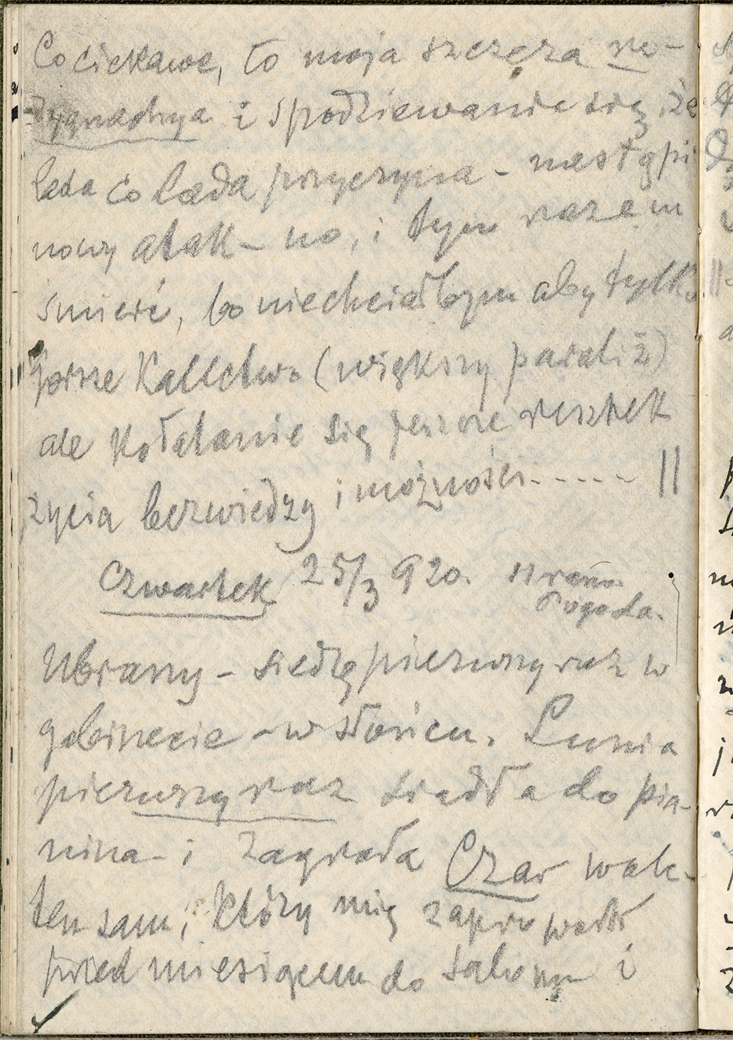 Co ciekawe, to moja szczera re-
zygnacya i spodziewanie się, że
lada co lada przyczyna - nastąpi
nowy atak - no, i tym razem
śmierć, bo niechciałbym aby tylko
gorsze Kalectwo (większy paraliż)
ale Kołatanie się jeszcze resztek
życia bezwiedzy i możności ----- ||
Czwartek 25/3 920. 11 rano
Pogoda.
Ubrany - siedzę pierwszy raz w
gabinecie - w słońcu. Lunia
pierwszy raz siadła do pia-
nina - i zagrała Czar walc -
ten sam, który mię zaprowadził
przed miesiącem do salonu i